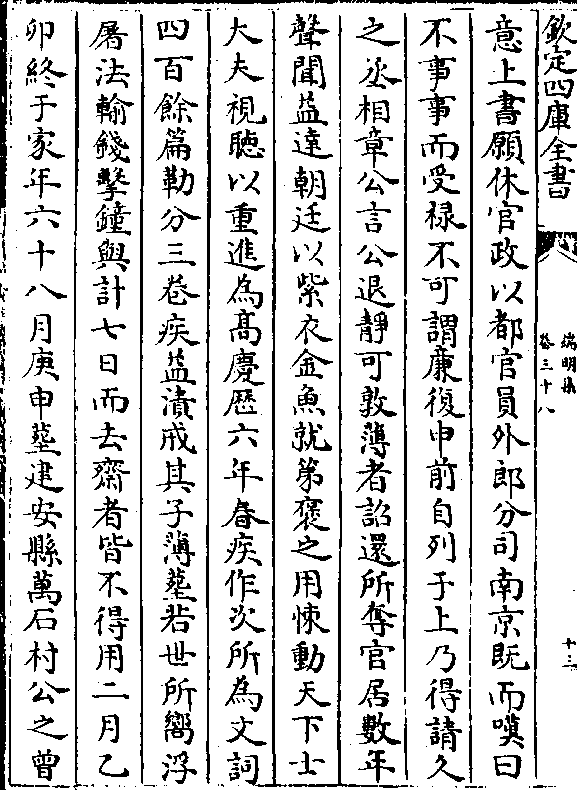 欽定四庫全書
端明集
卷三十八
十三
意上書願休官政以都官員外郎分司南京既而嘆曰
不事事而受禄不可謂廉復申前自列于上乃得請久
之丞相章公言公退静可敦薄者詔還所奪官居數年
聲聞益達朝廷以紫衣金魚就第褒之用悚動天下士
大夫視聽以重進為髙慶歴六年春疾作次所為文詞
四百餘篇勒分三卷疾益漬戒其子薄塟若世所嚮浮
屠法輸錢擊鐘與計七日而去齋者皆不得用二月乙
卯終于家年六十八月庚申塟建安縣萬石村公之曾